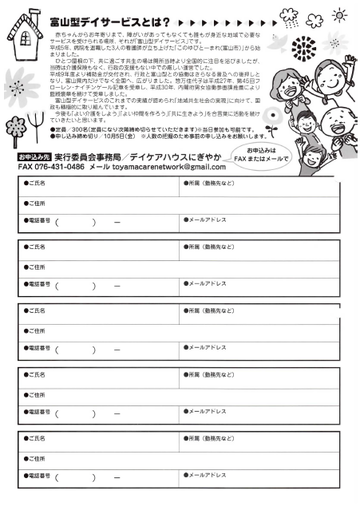 富山型デイサービスとは？
赤ちゃんからお年寄りまで、障がいがあってもなくても誰もが身近な地域で必要な
サービスを受けられる場所、それが「富山型デイサービス」です。
平成5年、病院を退職した3人の看護師が立ち上げた「このゆびとーまれ（富山市）」から始
まりました。
ひとつ屋根の下、共に過ごす共生の場は開所当時より全国的に注目を浴びましたが、
当時は介護保険もなく、行政の支援もない中での厳しい運営でした。
平成9年度より補助金が交付され、行政と富山型との協働はさらなる普及への後押しと
なり、富山県内だけでなく全国へ、広がりました。惣万佳代子は平成27年、第45回フ
ローレン・ナイチンゲール記章を受章し、平成30年、内閣府男女協働参画課推薦により
藍綬褒章を続けて受章しました。
富山型デイサービスのこれまでの実績が認められ「地域共生社会の実現」に向けて、国
政も積極的に取り組んでいます。
今後も「よい介護をしよう」「よい仲間を作ろう」「共に生きよう」を合言葉に活動を続け
ていきたいと思います。
●定員／300名（定員になり次第締め切らせていただきます）※当日参加も可能です。
●申し込み締め切り／10月5日（金） ※人数の把握のため事前の申し込みをお願いします。
お申込み先 実行委員会事務局／デイケアハウスにぎやか
FAX 076-431-0486 メール toyamacarenetwork@gmail.com
お申込みは
FAXまたはメールで
●ご氏名 ●所属（勤務先など）
●ご住所
●電話番号（　　　）　ー ●メールアドレス
●ご氏名 ●所属（勤務先など）
●ご住所
●電話番号（　　　）　ー ●メールアドレス
●ご氏名 ●所属（勤務先など）
●ご住所
●電話番号（　　　）　ー ●メールアドレス
●ご氏名 ●所属（勤務先など）
●ご住所
●電話番号（　　　）　ー ●メールアドレス
●ご氏名 ●所属（勤務先など）
●ご住所
●電話番号（　　　）　ー ●メールアドレス